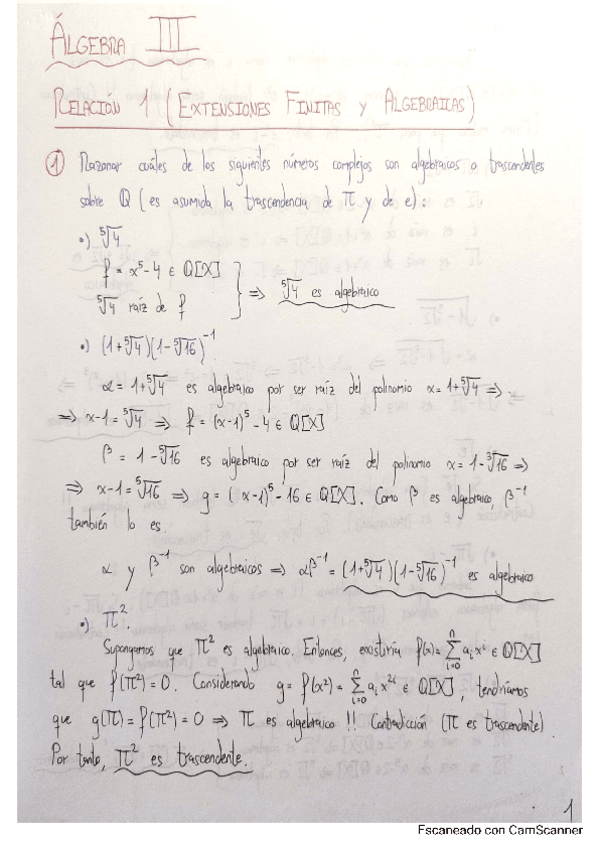 ÁLGEBRA III
RELACIÓN 1 (EXTENSIONES FINITAS Y ALGEBRAICAS)
① Razonar cuáles de los siguientes números complejos son algebraicos o trascendentes
sobre ℚ (es asumida la trascendencia de π y de e):
•) ⁵√4.
f = x⁵-4 ∈ ℚ[X]
⁵√4 raíz de f } ⟹ ⁵√4 es algebraico
•) (1+⁵√4)(1-⁵√16)⁻¹
α = 1+⁵√4 es algebraico por ser raíz del polinomio x = 1+⁵√4 ⟹
⟹ x-1 = ⁵√4 ⟹ f = (x-1)⁵-4 ∈ ℚ[X]
β = 1-⁵√16 es algebraico por ser raíz del polinomio x = 1-³√16 ⟹
⟹ x-1 = ⁵√16 ⟹ g = (x-1)⁵-16 ∈ ℚ[X]. Como β es algebraico, β⁻¹
también lo es.
α y β⁻¹ son algebraicos ⟹ αβ⁻¹ = (1+⁵√4)(1-⁵√16)⁻¹ es algebraico
•) π².
Supongamos que π² es algebraico. Entonces, existiría f(x) = Σⁿᵢ₌₀ aᵢxⁱ ∈ ℚ[X]
tal que f(π²) = 0. Considerando g = f(x²) = Σⁿᵢ₌₀ aᵢx²ⁱ ∈ ℚ[X], tendríamos
que g(π) = f(π²) = 0 ⟹ π es algebraico !! Contradicción (π es trascendente).
Por tanto, π² es trascendente.
1
Escaneado con CamScanner